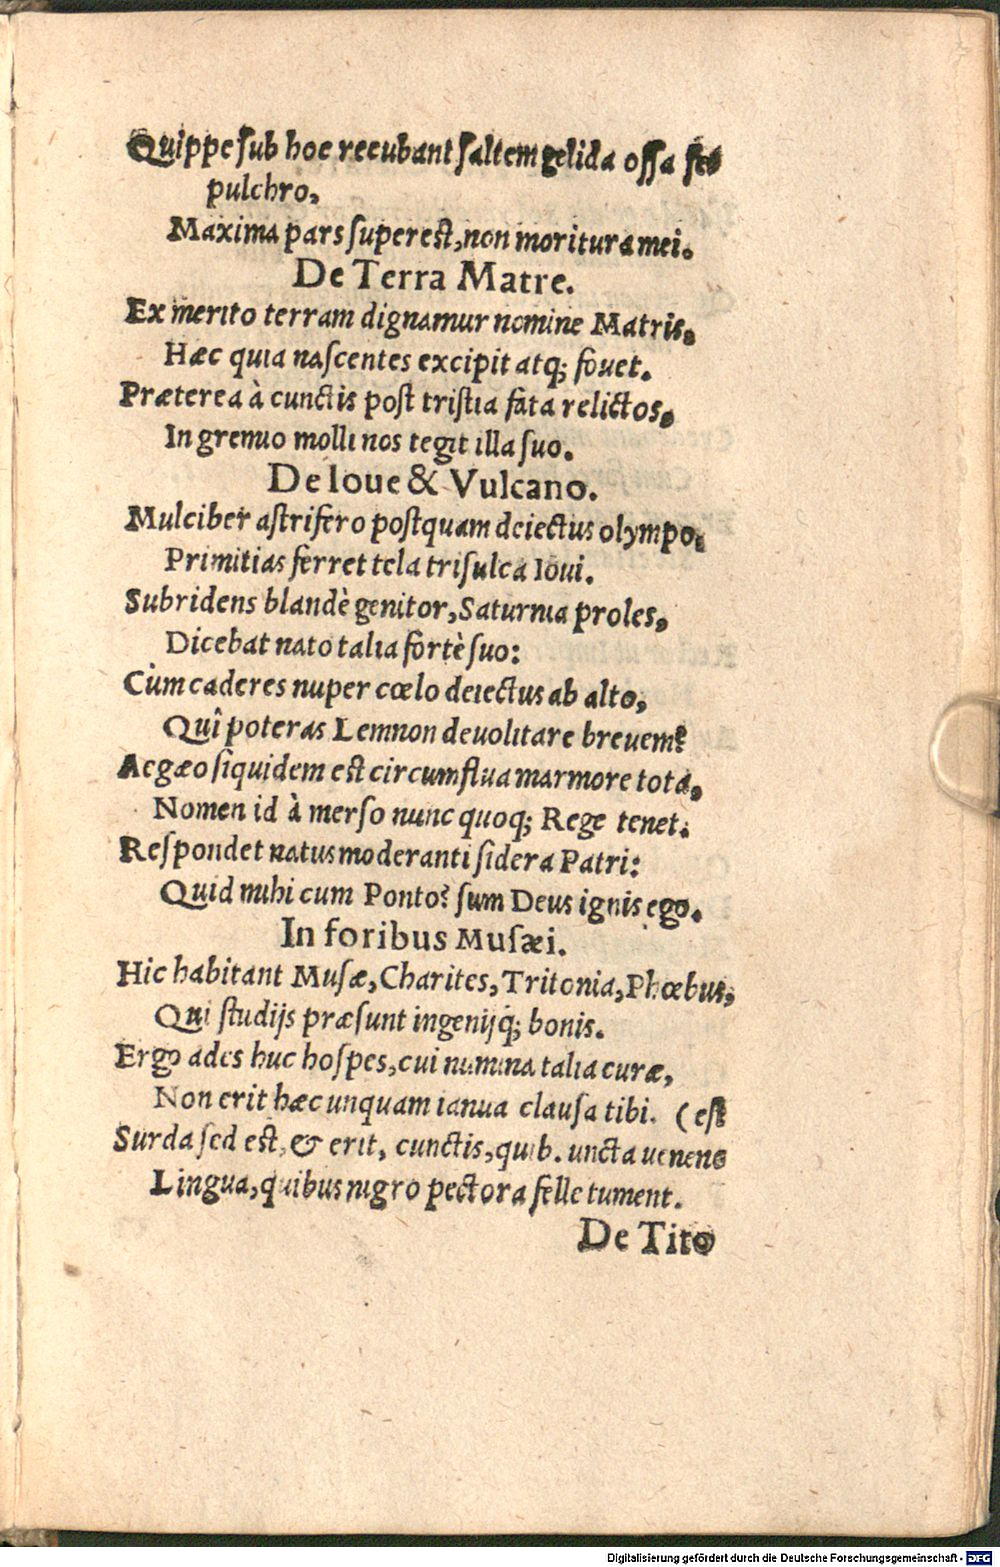 Quippe ſub hoc recubant ſaltem gelida oſſa ſe-
pulchro,
Maxima pars ſupereſt, non moritura mei.
De Terra Matre.
Ex merito terram dignamur nomine Matris,
Hæc quia naſcentes excipit atq; fouet.
Præterea à cunctis poſt triſtia fata relictos,
In gremio molli nos tegit illa ſuo.
De Ioue & Vulcano.
Mulciber aſtrifero poſtquam deiectus olympo,
Primitias ferret tela triſulca Ioui.
Subridens blandè genitor, Saturnia proles,
Dicebat nato talia fortè ſuo:
Cùm caderes nuper cœlo deiectus ab alto,
Quî poteras Lemnon deuolitare breuem?
Aegæo ſiquidem est circumflua marmore tota,
Nomen id à merſo nunc quoq; Rege tenet.
Reſpondet natus moderanti ſidera Patri:
Quid mihi cum Ponto? ſum Deus ignis ego.
In foribus Muſæi.
Hic habitant Muſæ, Charites, Tritonia, Phœbus,
Qui ſtudijs præſunt ingenijq; bonis.
Ergo ades huc hoſpes, cui numina talia curæ,
Non erit hæc unquam ianua clauſa tibi. (eſt
Surda ſed eſt, & erit, cunctis, quib. uncta ueneno
Lingua, quibus nigro pectora felle tument.
De Tito
Digitalisierung gefördert durch die Deutsche Forschungsgemeinschaft - DFG